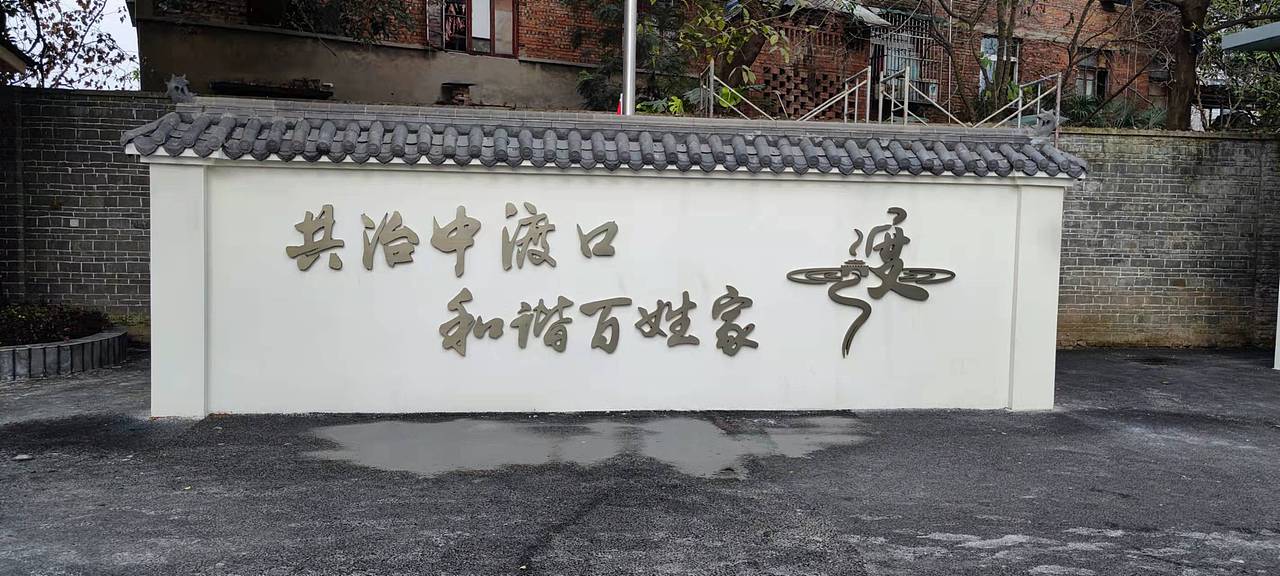 共治中渡口
和谐百姓家
渡